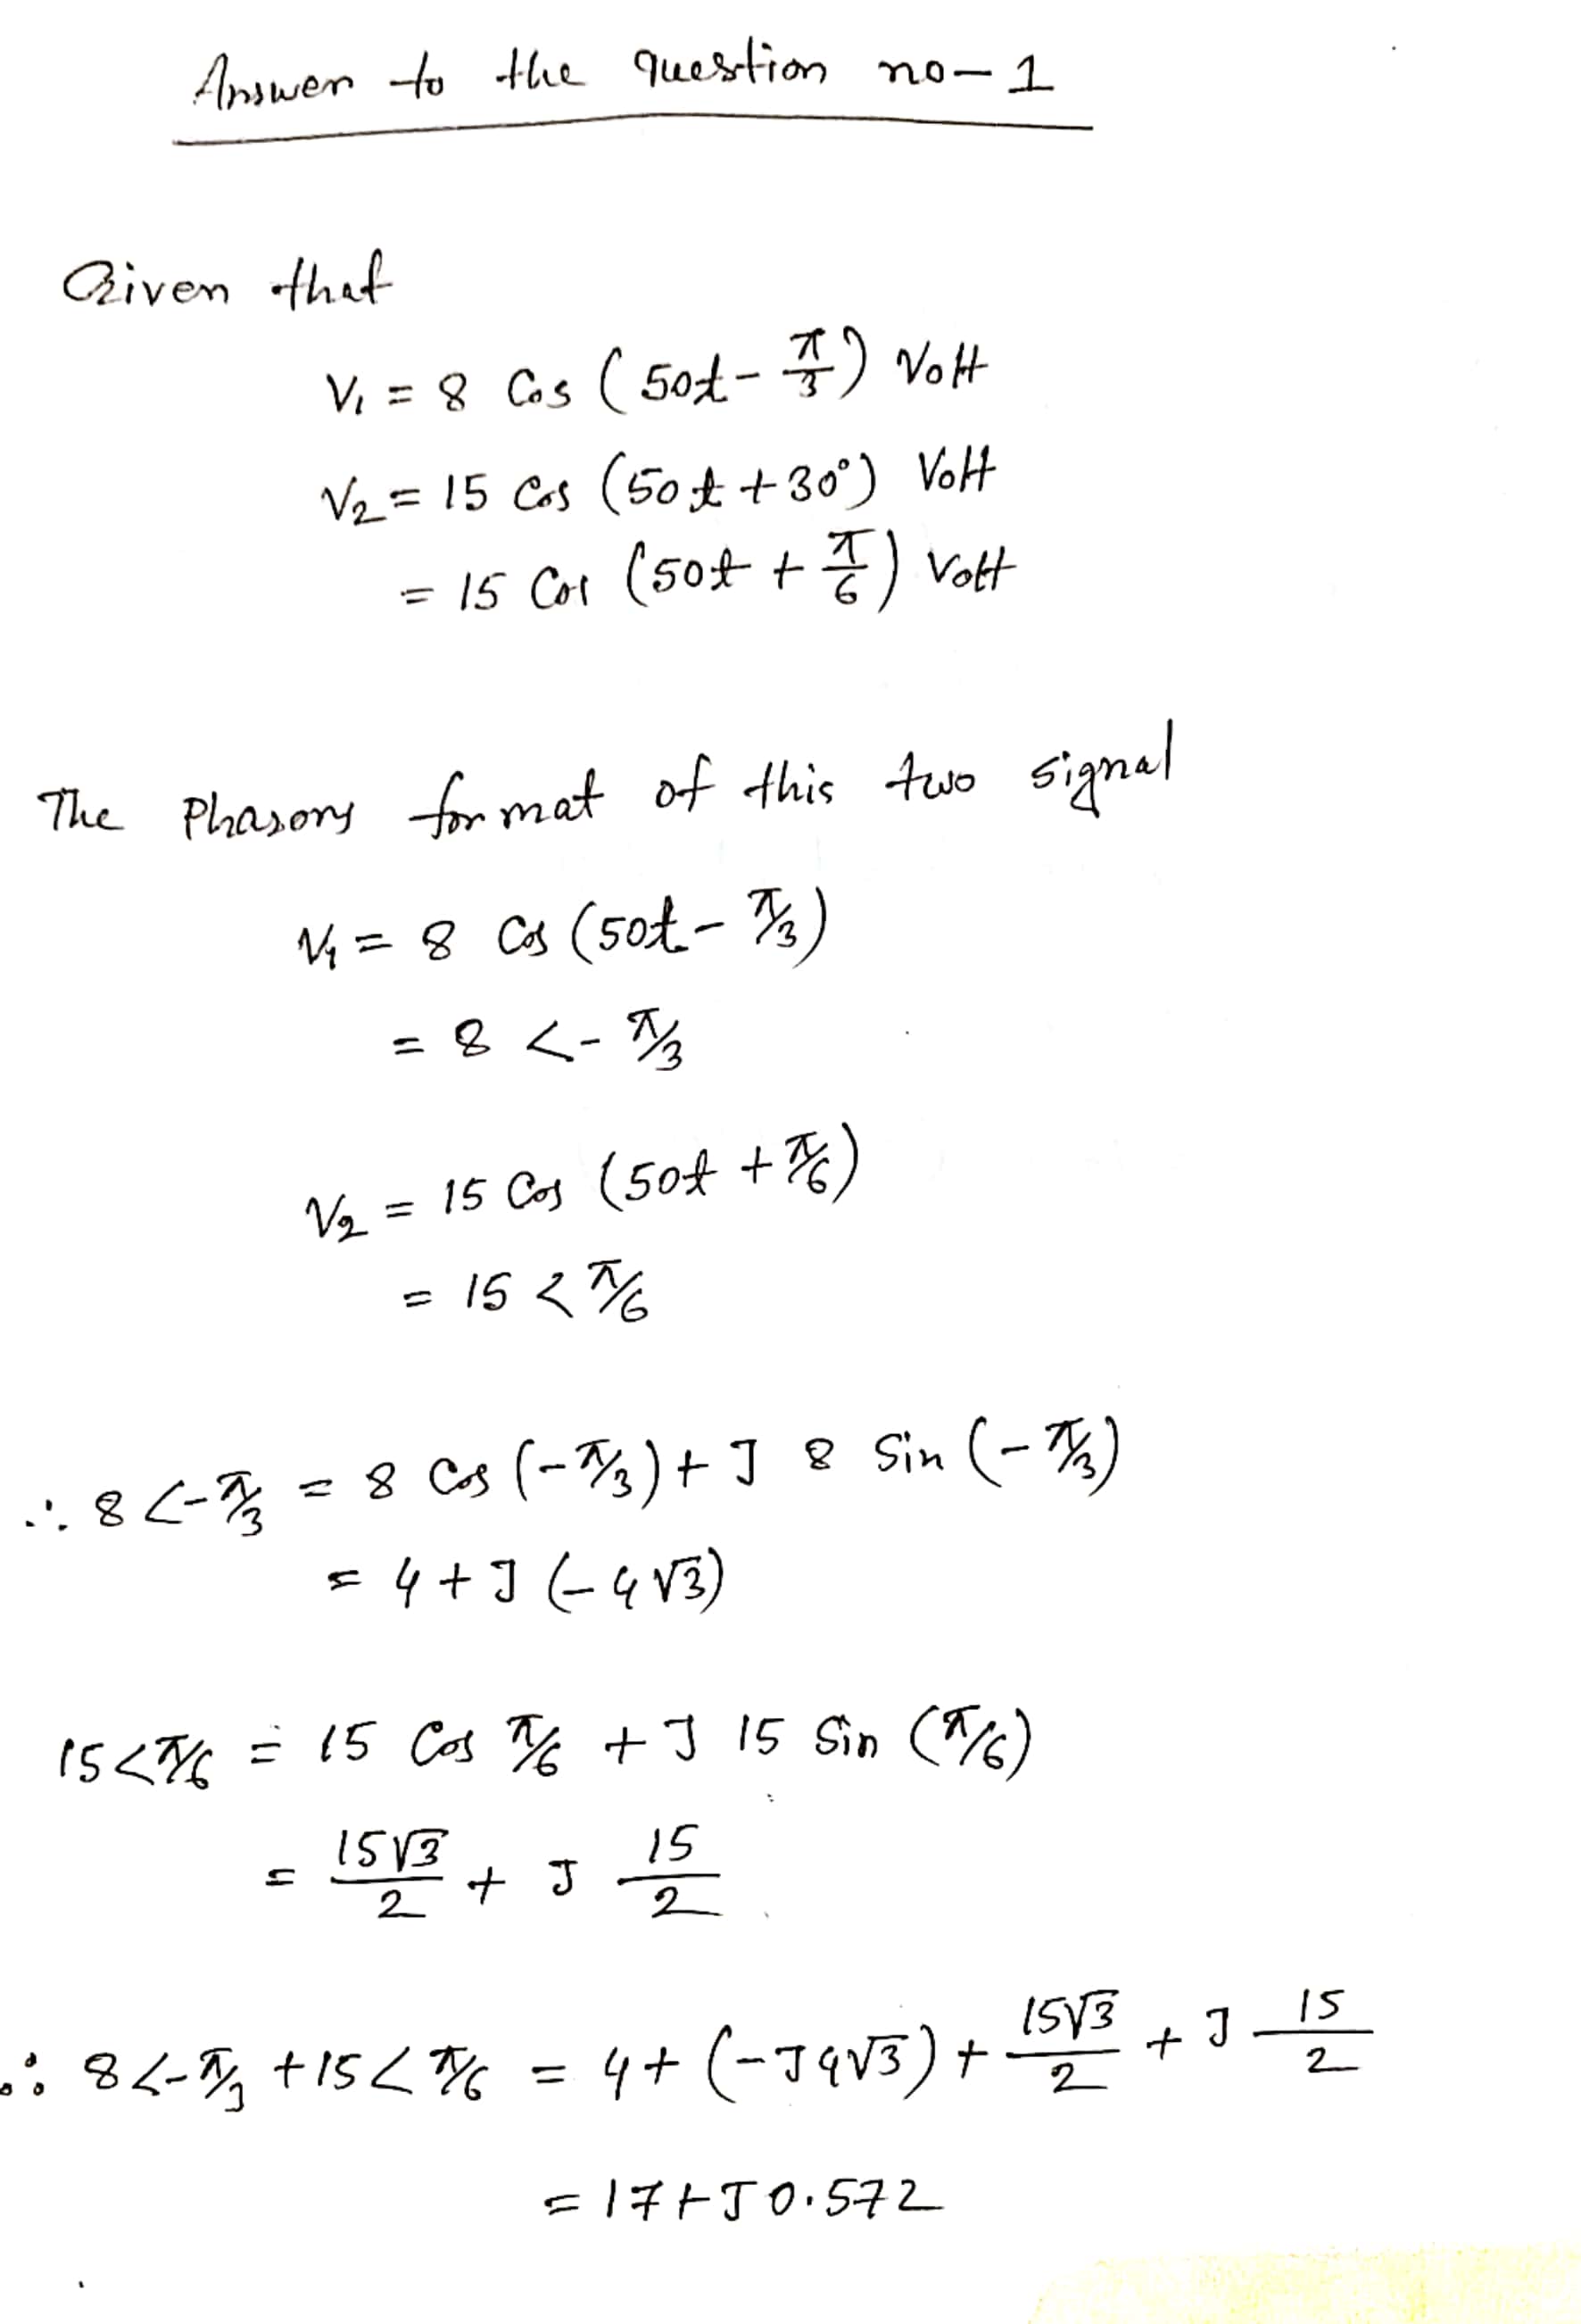 Answer to the question no-1
Given that
V₁ = 8 Cos (50t - π/3) Volt
V₂ = 15 Cos (50t + 30°) Volt
= 15 Cos (50t + π/6) Volt
The Phasors format of this two signal
V₁ = 8 Cos (50t - π/3)
= 8 < - π/3
V₂ = 15 Cos (50t + π/6)
= 15 < π/6
∴ 8 < - π/3 = 8 Cos (-π/3) + J 8 Sin (-π/3)
= 4 + J (-4√3)
15 < π/6 = 15 Cos π/6 + J 15 Sin (π/6)
= 15√3/2 + J 15/2
∴ 8 < - π/3 + 15 < π/6 = 4 + (-J4√3) + 15√3/2 + J 15/2
= 17 + J 0.572